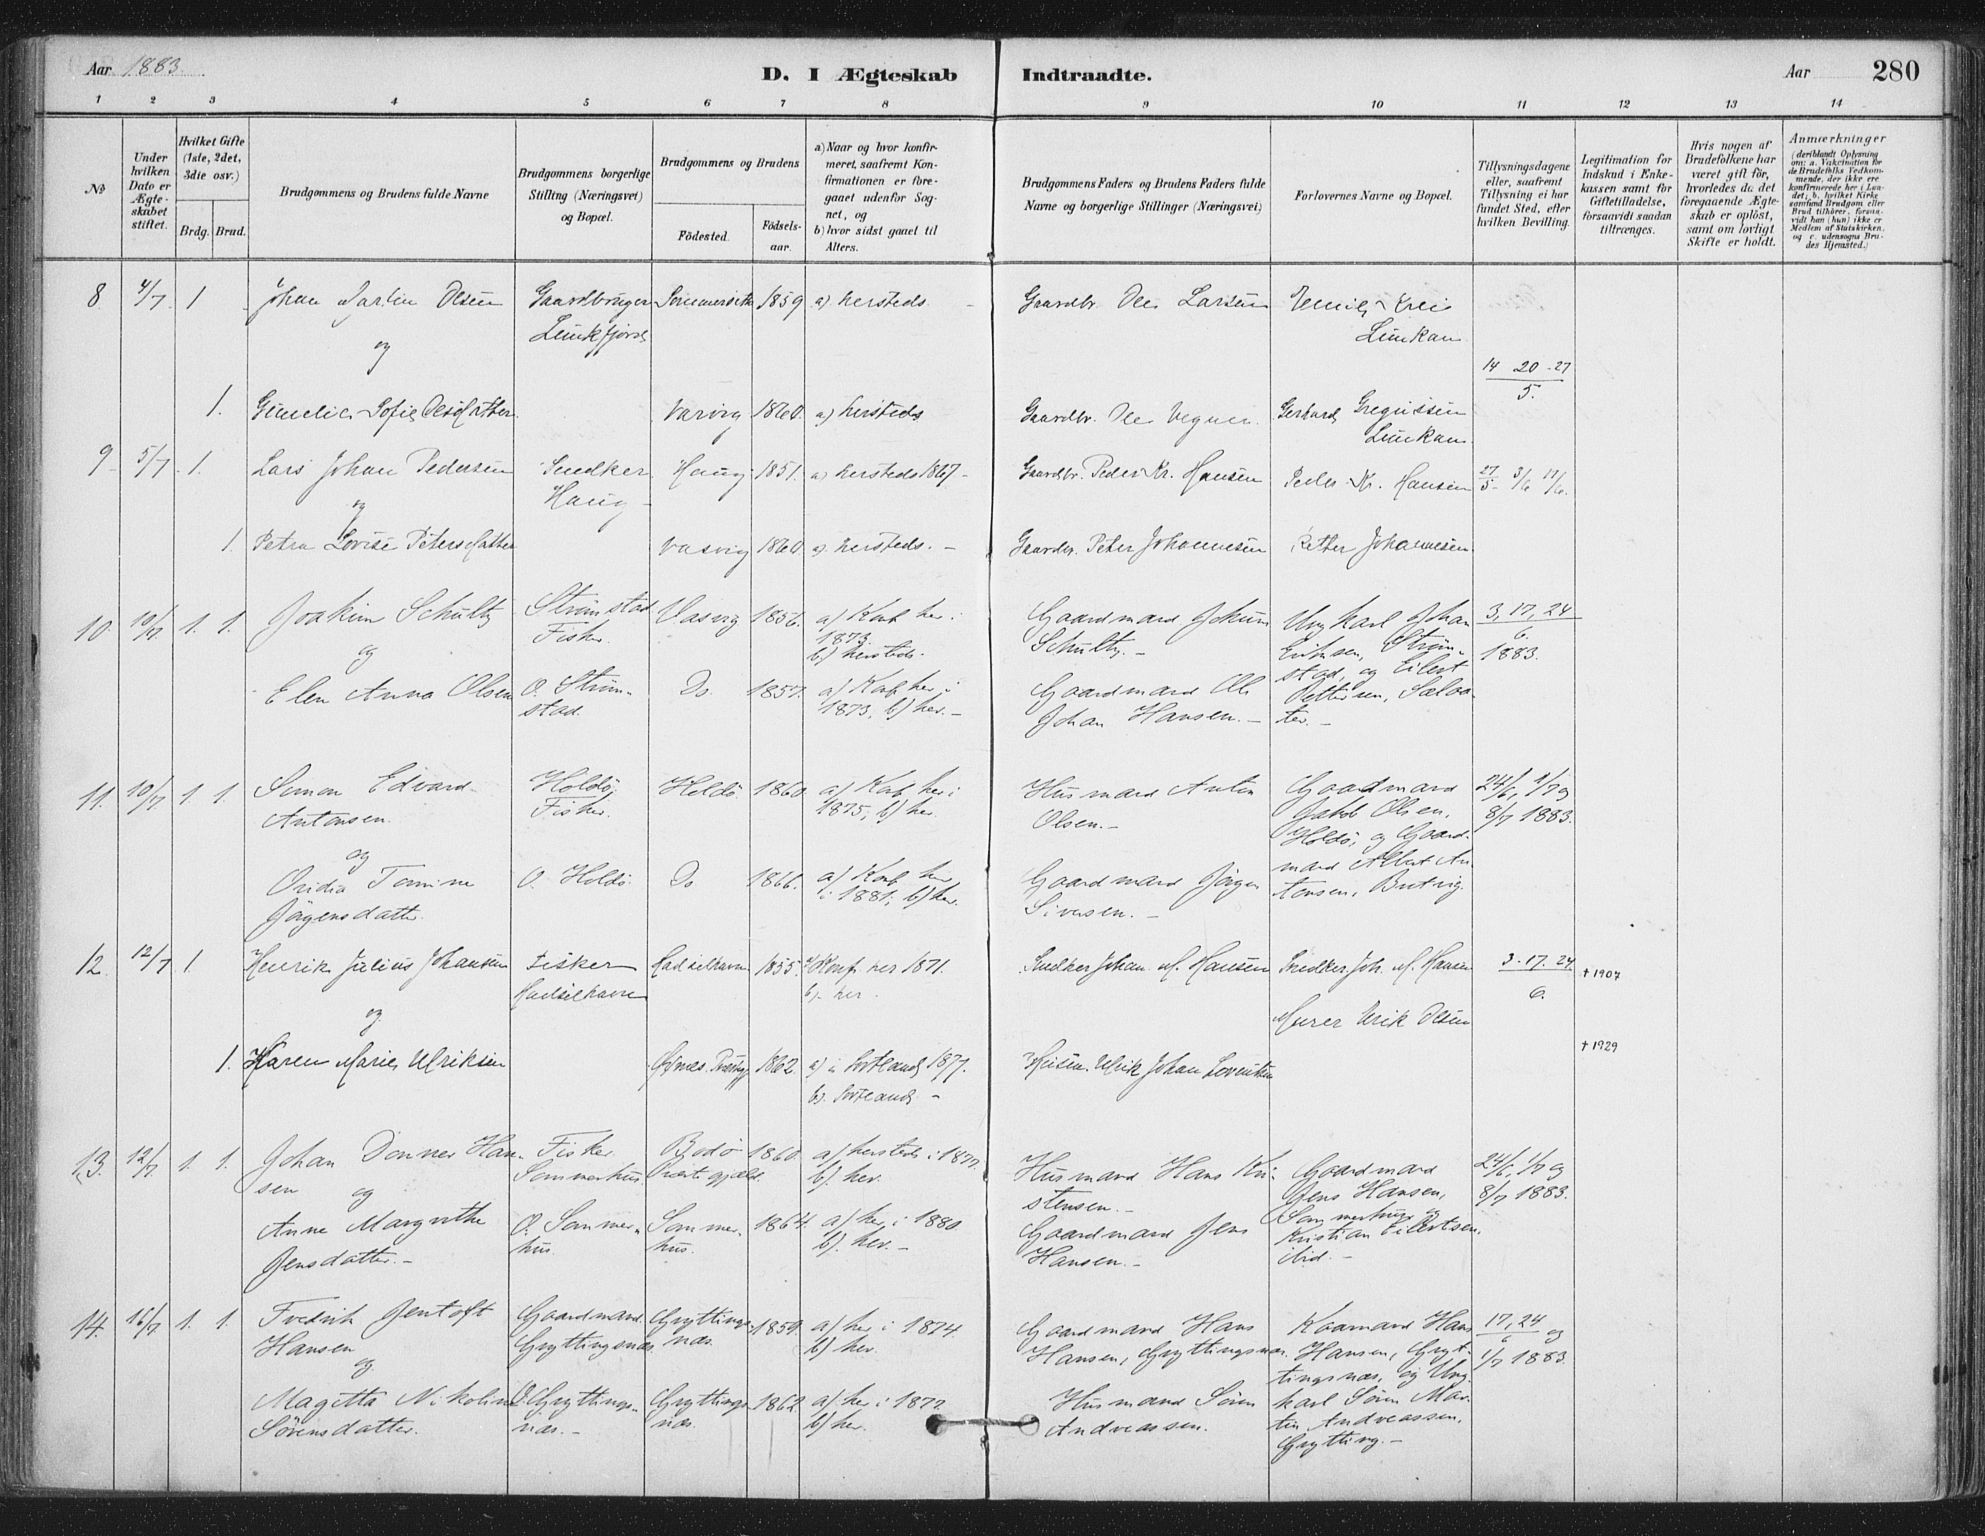 Aar 1883.
D. I Ægteskab Indtraadte.
Aar 280
1 2 3 4 5 6 7 8 9 10 11 12 13 14
No
Under hvilken Dato er Ægteskabet stiftet.
Hvilket Gifte (1ste, 2det, 3die osv.)
Brdg. Brud.
Brudgommens og Brudens fulde Navne
Brudgommens borgerlige Stilling (Næringsvei) og Bopæl.
Brudgommens og Brudens
Fødested. Fødselsaar.
a) Naar og hvor konfirmeret, saafremt Konfirmationen er foregaaet udenfor Sognet, og
b) hvor sidst gaaet til Alters.
Brudgommens Faders og Brudens Faders fulde Navne og borgerlige Stillinger (Næringsvei)
Forlovernes Navne og Bopæl.
Tillysningsdagene eller, saafremt Tillysning ei har fundet Sted, efter hvilken Bevilling.
Legitimation for Indskud i Enkekassen samt for Giftetilladelse, forsaavidt saadan tiltrænges.
Hvis nogen af Brudefolkene har været gift før, hvorledes da det foregaaende Ægteskab er opløst, samt om lovligt Skifte er holdt.
Anmærkninger
8 4/7 1 Johan Martin Olsen Gaardbruger 1859 a) hersteds Gaardbr. Ole Larsen
og
14 20 - 27
5.
1. Sofie 1860. a) hersteds Gaardbr. Ole Gerhard Gregussen
9 5/7 1. Lars Johan Pedersen Snedker Haug 1851. a) hersteds 1867 - Gaardbr. Peder Kr. Hansen Peder Kr. Hansen 27/5 3/6 17/6.
og Haug -
1. Petra Lovise Petersdatter Vasvig 1860 a) hersteds. - Gaardbr. Peter Johannesen Petter Johannesen
10. 10/7 1. 1. Joakim Schultz Strømstad Fisker. Vasvig 1856. a) Konf her i 1873. b) hersteds. Gaardmand Jokum Schultz. - Ungkarl Johan Eriksen, Strømstad, og Eilert Pettersen, 3, 17, 24
6.
1883.
og
Elen Anna Olsen O. Strømstad. Do 1857. a) Konf her i 1873, b) her. - Gaardmand Ole Johan Hansen. -
11. 10/7 1 1. Simon Edvard Antonsen. Holdø. Fisker. Holdø. 1860. a) Konf her i 1875, b) her. Husmand Anton Olsen. - Gaardmand Jakob Olsen, Holdø, og Gaardmand Albert Antonsen, Butvig. 24/6, 1/7 og 8/7 1883.
og
Ovidia Tomine Jørgensdatter. O. Holdø. Do 1866. a) Konf her i 1881; b) her. Gaardmand Jørgen Siversen. -
12. 12/7 1 Henrik Julius Johansen Fisker Hadselhavn Hadselhavn 1855. a) Konf her 1871. b). her. Snedker Johan M. Hansen Snedker Joh. M. Hansen 3 - 17. 24.
6. † 1907
og Murer Ulrik Olsen
1. Karen Marie Ulriksen 1862. a) i Sortland 1877. b). Sortland - Ulrik Johan † 1929
13. 12/7 1. 1. Johan Donner Hansen Fisker Sommerhus. Bodø Præstegjæld. 1860. a) hersteds i 1877. b). her. Husmand Hans Kristensen. - Gaardmand Jens Hansen, Sommerhus og Kristian Eilertsen, ibid. - 24/6, 1/7 og 8/7 1883.
og
Anne Margrethe Jensdatter. - O. Sommerhus. Sommerhus. 1864. a) her i 1880 b). her. - Gaardmand Jens Hansen. -
14. 16/7 1. 1. Fredrik Jentoft Hansen Gaardmand. Gryttingsnæs. Gryttingsnæs. 1859. a) her i 1874. b) her. Gaardmand Hans Hansen, Gryttingsnæs. Kaarmand Hans Hansen, Gryttingsnæs, og Ungkarl Søren Martin Andreassen, Grytting. - 17, 24
6 og
1/7 1883.
og
Magitta Nikoline Sørensdatter. O. Gryttingsnæs. - Gryttingsnæs 1862. a) her i 1877 b) her. Husmand Søren Andreassen.